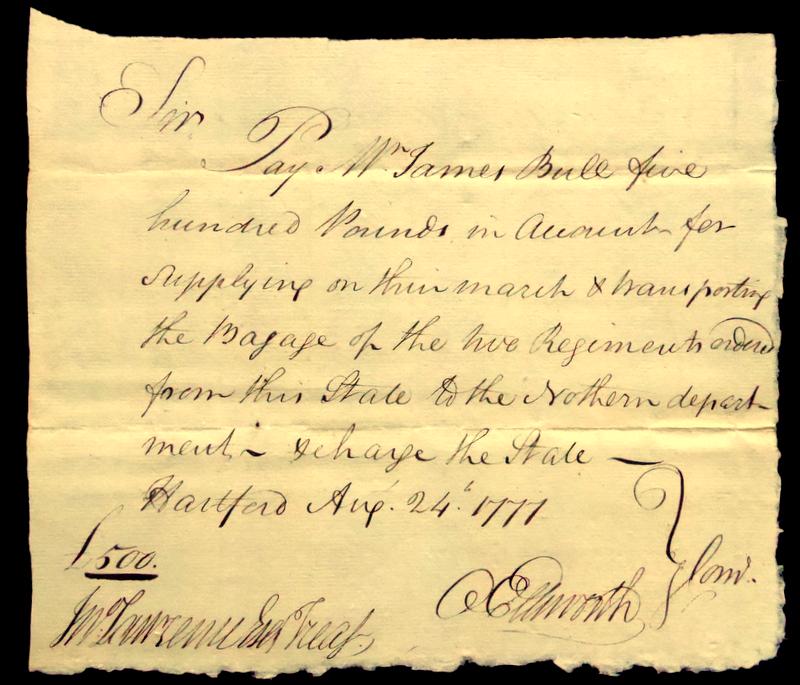 Sir
Pay Mr James Bull five
hundred Pounds in Account for
supplying on their march & transporting
the Bagage of the two Regiments ordered
from this State to the Nothern depart-
ment - & charge the State —
Hartford Aug. 24th. 1777
£500.
O Ellsworth } Com.
Jno Lawrence Esqr Treasr